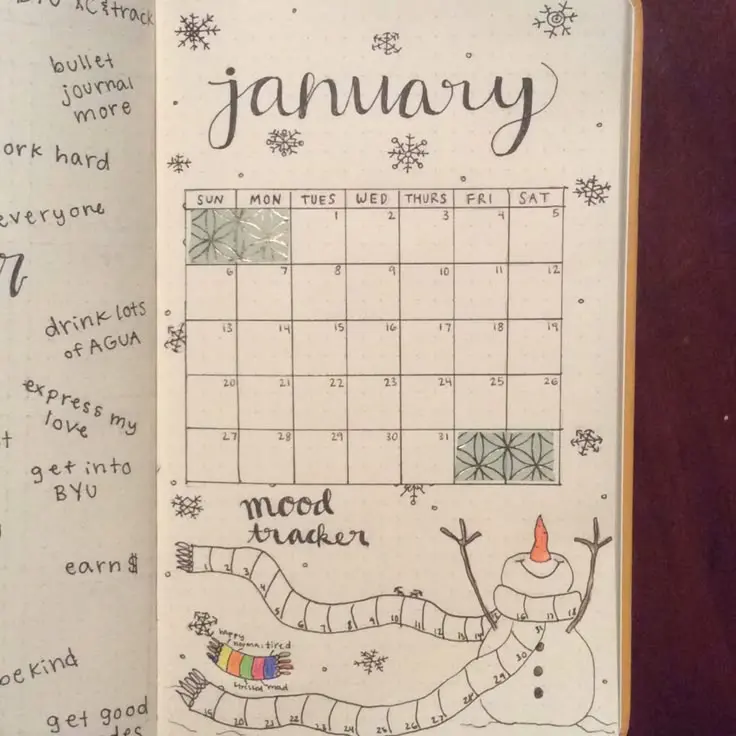 &track
bullet
journal
more
ork hard
everyone
drink lots
of AGUA
express my
love
get into
BYU
earn $
be kind
get good
january
SUN MON TUES WED THURS FRI SAT
1 2 3 4 5
6 7 8 9 10 11 12
13 14 15 16 17 18 19
20 21 22 23 24 25 26
27 28 29 30 31
mood
tracker
1 2 3 4 5 6 7 8 9 10 11 12 13 14 15 16 17 18
happy
normal tired
stressed mad
19 20 21 22 23 24 25 26 27 28 29 30 31